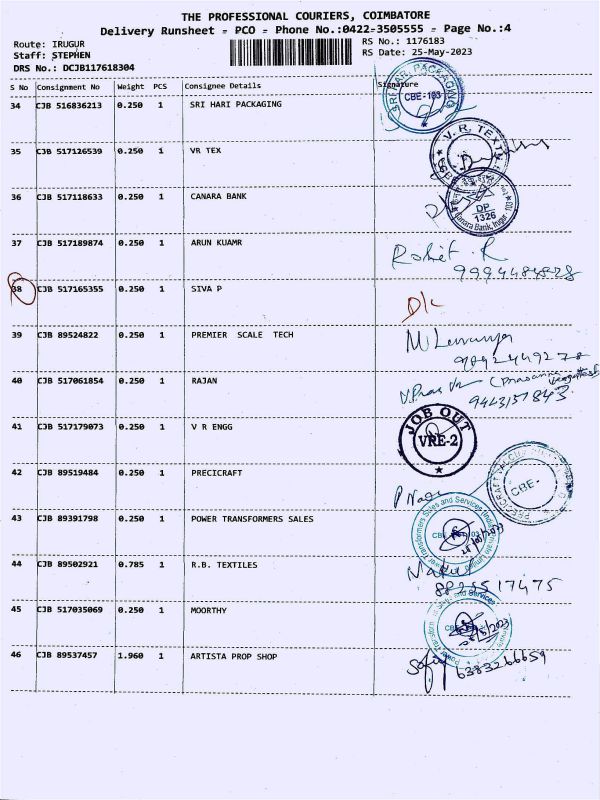 THE PROFESSIONAL COURIERS, COIMBATORE
Delivery Runsheet - PCO - Phone No.:0422-3505555 - Page No.:4
Route: IRUGUR RS No.: 1176183
Staff: STEPHEN RS Date: 25-May-2023
DRS No.: DCJB117618304
S No Consignment No Weight PCS Consignee Details Signature
34 CJB 516836213 0.250 1 SRI HARI PACKAGING
SRI HARI PACKAGING CBE-103
35 CJB 517126539 0.250 1 VR TEX
V.R. TEXTN
36 CJB 517118633 0.250 1 CANARA BANK
DP 1326
Canara Bank, Irugur
37 CJB 517189874 0.250 1 ARUN KUAMR
Rohit. R
9994484828
38 CJB 517165355 0.250 1 SIVA P
D/L
39 CJB 89524822 0.250 1 PREMIER SCALE TECH
9092449278
40 CJB 517061854 0.250 1 RAJAN
9443151843
41 CJB 517179073 0.250 1 V R ENGG
JOB OUT
VRE-2
42 CJB 89519484 0.250 1 PRECICRAFT
CBE-
43 CJB 89391798 0.250 1 POWER TRANSFORMERS SALES
Power Transformers Sales and Services
44 CJB 89502921 0.785 1 R.B. TEXTILES
8825517475
45 CJB 517035069 0.250 1 MOORTHY
46 CJB 89537457 1.960 1 ARTISTA PROP SHOP
6383266659